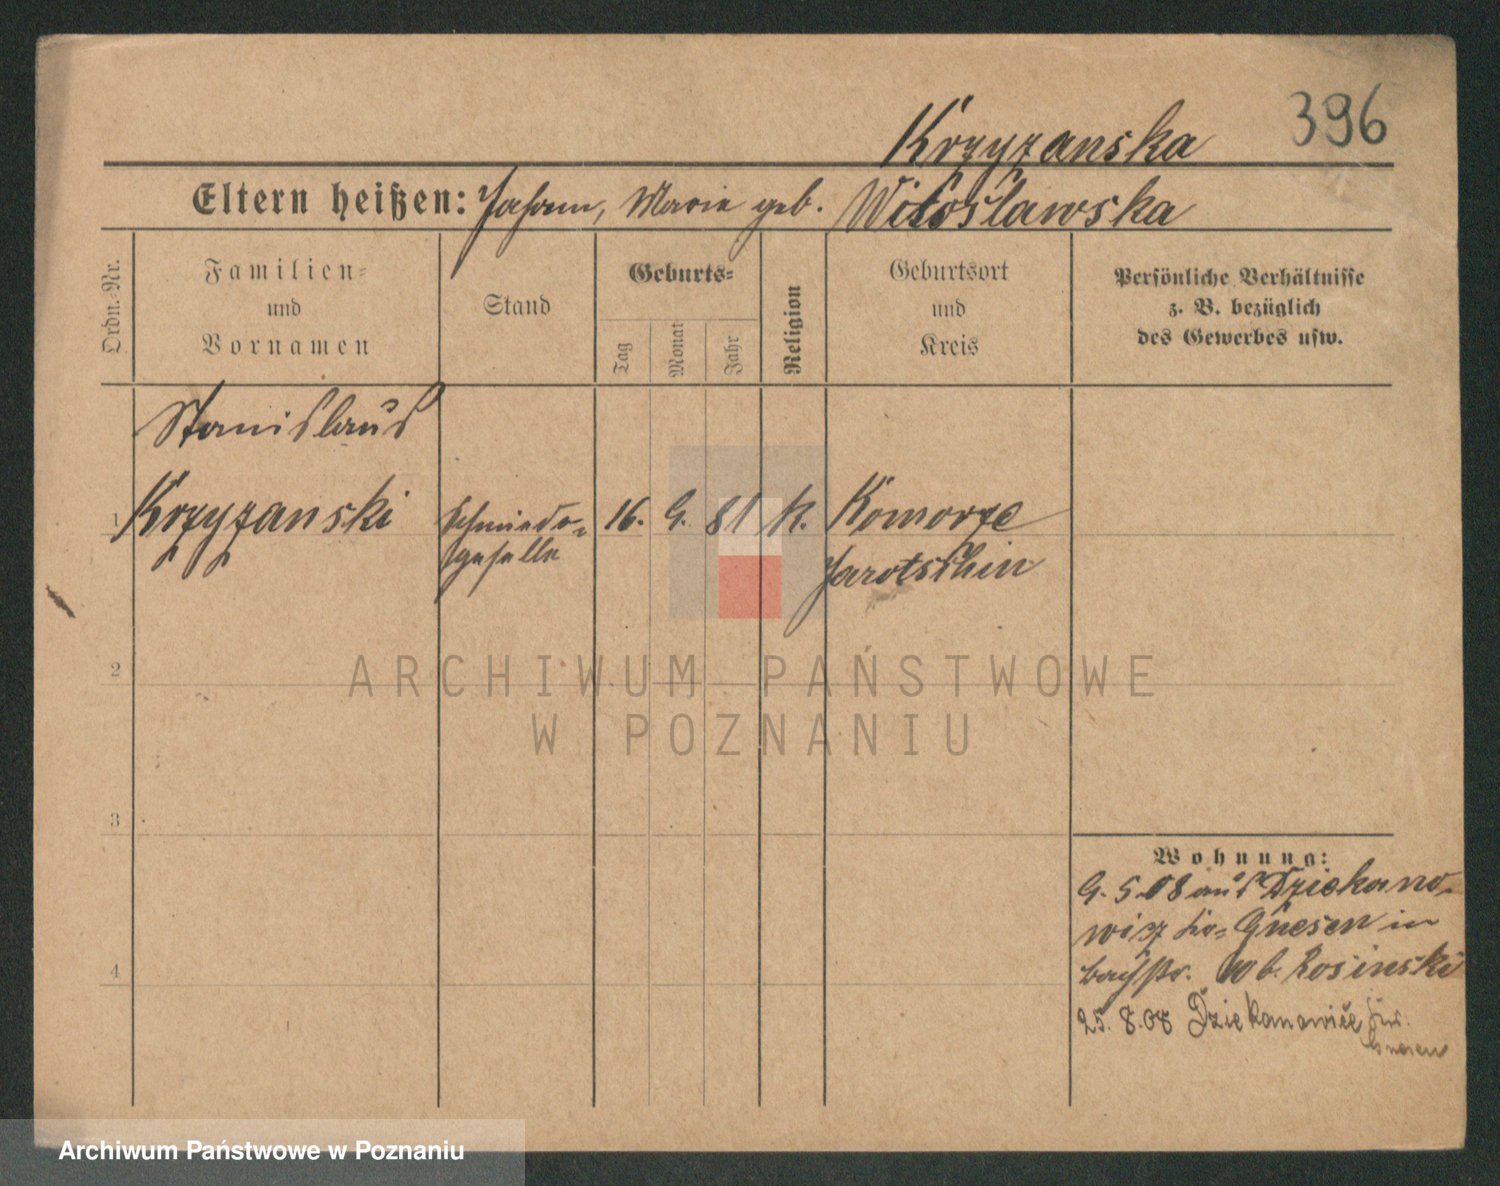 396
Krzyzanska
Eltern heißen: Johann, Marie geb. Witoslawska
Ordn.-Nr.
Familien-
und
Vornamen
Stand
Geburts-
Tag
Monat
Jahr
Religion
Geburtsort
und
Kreis
Persönliche Verhältnisse
z. B. bezüglich
des Gewerbes usw.
Stanislaus
1 Krzyzanski Schmiede- 16. 9. 81 K. Komorze
geselle Jarotschin
2
ARCHIWUM PAŃSTWOWE
W POZNANIU
3
Wohnung:
9. 5. 08 aus Dziekano-
wicz Gnesen in
b. Rosinski
4
25. 8. 08 Dziekanowice
Gnesen
Archiwum Państwowe w Poznaniu